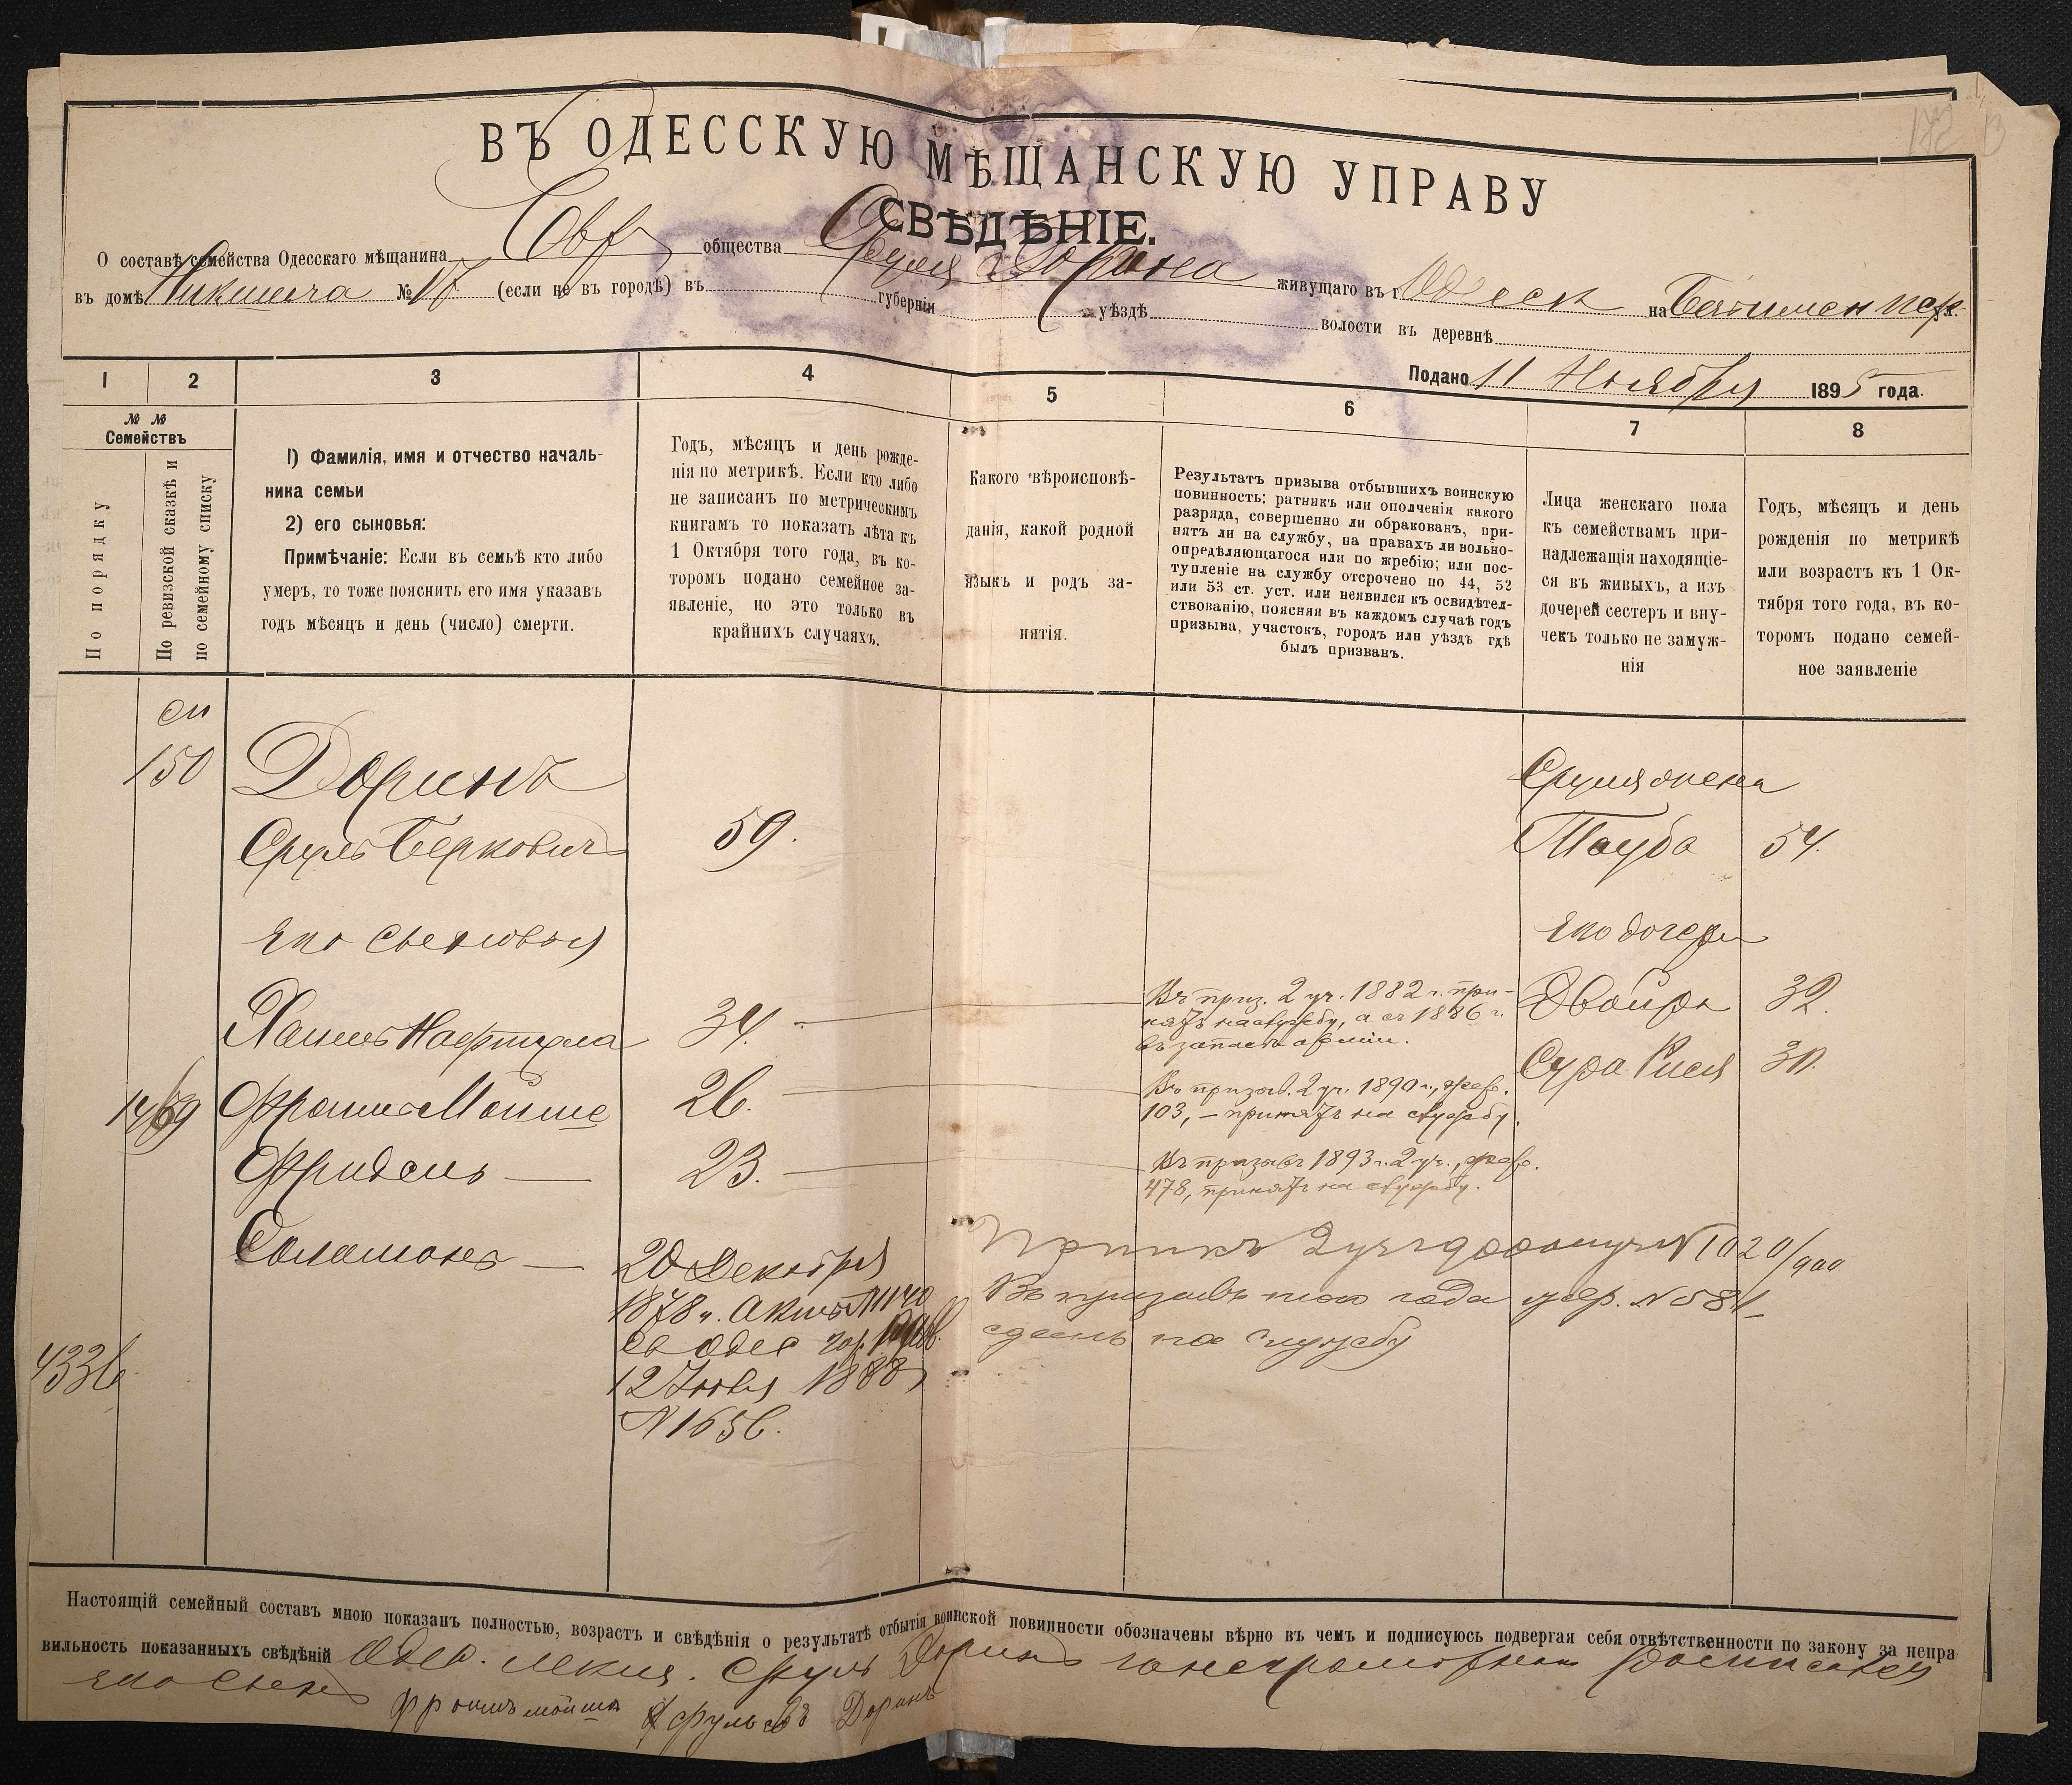 ВЪ ОДЕССКУЮ МѢЩАНСКУЮ УПРАВУ
СВѢДѢНІЕ.
О составѣ семейства Одесскаго мѣщанина Евр общества Сруля Дорина живущаго въ г. Одесск на
въ домѣ № 17 (если не въ городѣ) въ губерніи уѣздѣ волости въ деревнѣ
Подано 11 Ноября 1895 года.
1 2 3 4 5 6 7 8
№ № Семействъ
По порядку
По ревизской сказкѣ и по семейному списку
1) Фамилія, имя и отчество началь-
ника семьи
2) его сыновья:
Примѣчаніе: Если въ семьѣ кто либо
умеръ, то тоже пояснить его имя указавъ
годъ мѣсяцъ и день (число) смерти.
Годъ, мѣсяцъ и день рожде-
нія по метрикѣ. Если кто либо
не записанъ по метрическимъ
книгамъ то показать лѣта къ
1 Октября того года, въ ко-
торомъ подано семейное за-
явленіе, но это только въ
крайнихъ случаяхъ.
Какого вѣроисповѣ-
данія, какой родной
языкъ и родъ за-
нятія.
Результатъ призыва отбывшихъ воинскую
повинность: ратникъ или ополченія какого
разряда, совершенно ли обракованъ, при-
нятъ ли на службу, на правахъ ли вольно-
опредѣляющагося или по жребію; или пос-
тупленіе на службу отсрочено по 44, 52
или 53 ст. уст. или неявился къ освидѣтел-
ствованію, поясняя въ каждомъ случаѣ годъ
призыва, участокъ, городъ или уѣздъ гдѣ
былъ призванъ.
Лица женскаго пола
къ семействамъ при-
надлежащія находящіе-
ся въ живыхъ, а изъ
дочерей сестеръ и вну-
чекъ только не замуж-
нія
Годъ, мѣсяцъ и день
рожденія по метрикѣ
или возрастъ къ 1 Ок-
тября того года, въ ко-
торомъ подано семей-
ное заявленіе
150 Доринъ
Сруля жена
Сруль Беркович 59. Тауба 54.
Его сыновья Его дочери
Хаимъ Нафтула 34. Двойра 32.
Въ приз. 2 уч. 1882 г. при-
нятъ на службу, а съ 1886 г.
въ запасѣ арміи.
Сура Рися 30.
1469 Фроимъ Мойше 26.
Въ призыв. 2 уч. 1890 г., жер.
103, – принятъ на службу.
Фридель — 23.
Въ призывъ 1893 г. 2 уч., жер.
478, принятъ на службу.
Соломонъ — 20 Декабря
1878 г. Актъ №1140
4336
12 Іюня 1888
N 1656.
Въ призывъ того года жер. №581
сданъ на службу
Настоящій семейный составъ мною показанъ полностью, возрастъ и свѣдѣнія о результатѣ отбытія воинской повинности обозначены вѣрно въ чемъ и подписуюсь подвергая себя отвѣтственности по закону за непра
вильность показанныхъ свѣдѣній Одес. мѣщ. Сруль Доринъ
его сынъ Фроимъ Мойша Срульевъ Доринъ